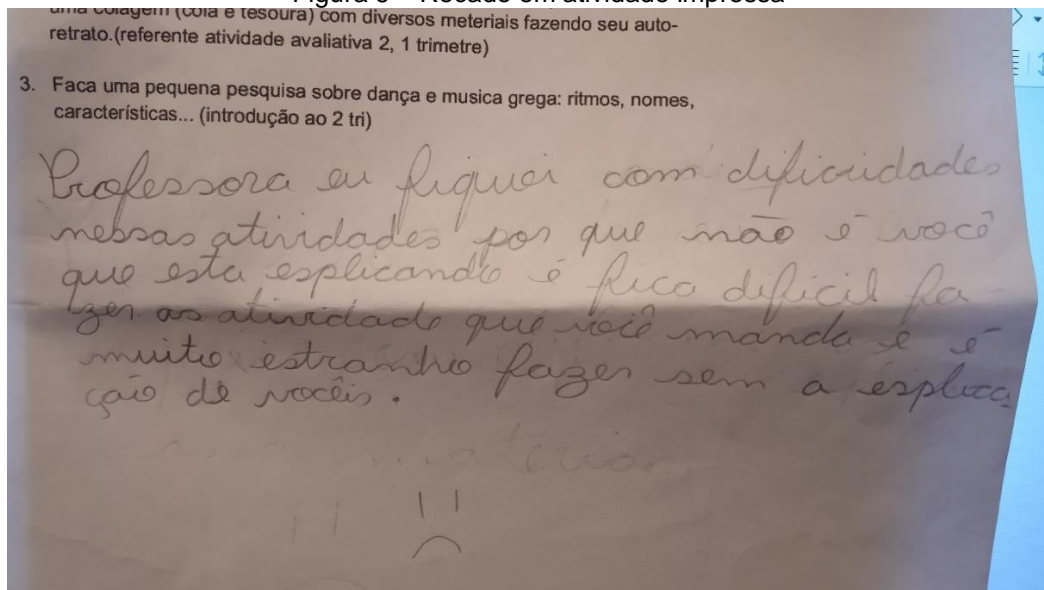 Figura 3 – Recado em atividade impressa
uma colagem (cola e tesoura) com diversos meteriais fazendo seu auto-
retrato.(referente atividade avaliativa 2, 1 trimetre)
3. Faca uma pequena pesquisa sobre dança e musica grega: ritmos, nomes,
características... (introdução ao 2 tri)
Professora eu fiquei com dificuidades
nessas atividades por que não é você
que esta esplicando é fica dificil fa-
zer as atividade que você manda e é
muito estranho fazer sem a esplica
ção de vocêis.